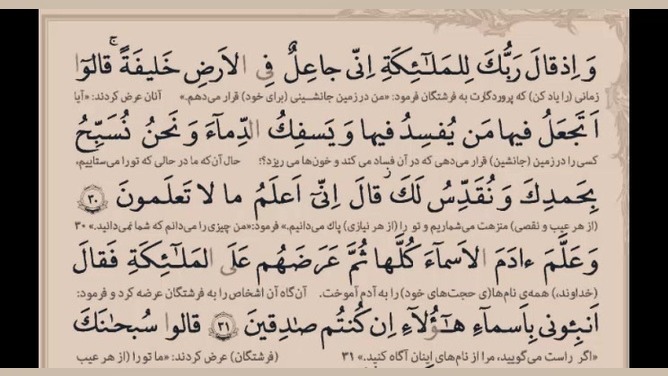 وَ اِذ قالَ رَبُّكَ لِلمَلـٰٓئِكَةِ اِنّى جاعِلٌ فِى الاَرضِ خَليفَةً ۚ قالوٓا
زمانی (را یاد کن) که پروردگارت به فرشتگان فرمود: «من در زمین جانشینی (برای خود) قرار می‌دهم.» آنان عرض کردند: «آیا
اَتَجعَلُ فيها مَن يُفسِدُ فيها وَ يَسفِكُ الدِّمآءَ وَ نَحنُ نُسَبِّحُ
کسی را در زمین (جانشین) قرار می‌دهی که در آن فساد می کند و خون‌ها می ریزد؟! حال آن‌که ما در حالی که تو را می‌ستاییم،
بِحَمدِكَ وَ نُقَدِّسُ لَكَ ۖ قالَ اِنّىٓ اَعلَمُ ما لا تَعلَمونَ ٣٠
(از هر عیب و نقصی) منزهت می‌شماریم و تو را (از هر نیازی) پاك می‌دانیم.» فرمود: «من چیزی را می‌دانم که شما نمی‌دانید.» ٣٠
وَ عَلَّمَ ءادَمَ الاَسمآءَ كُلَّها ثُمَّ عَرَضَهُم عَلَى المَلـٰٓئِكَةِ فَقالَ
(خداوند،) همه‌ی نام‌ها(ی حجت‌های خود) را به آدم آموخت. آن‌گاه آن اشخاص را به فرشتگان عرضه کرد و فرمود:
اَنبِئونى بِاَسمآءِ هـٰٓؤُلآءِ اِن كُنتُم صـٰدِقينَ ٣١ قالوا سُبحـٰنَكَ
«اگر راست می‌گویید، مرا از نام‌های اینان آگاه کنید.» ٣١ (فرشتگان) عرض کردند: «ما تو را (از هر عیب